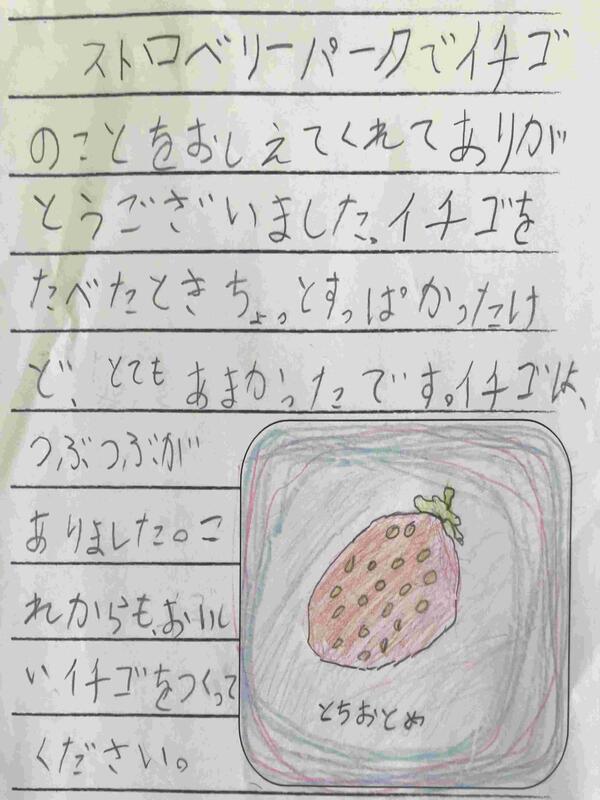 ストロベリーパークでイチゴ
のことをおしえてくれてありが
とうございました。イチゴを
たべたときちょっとすっぱかったけ
ど、とてもあまかったです。イチゴは、
つぶつぶが
ありました。こ
れからも、おいし
いイチゴをつくって
ください。
とちおとめ